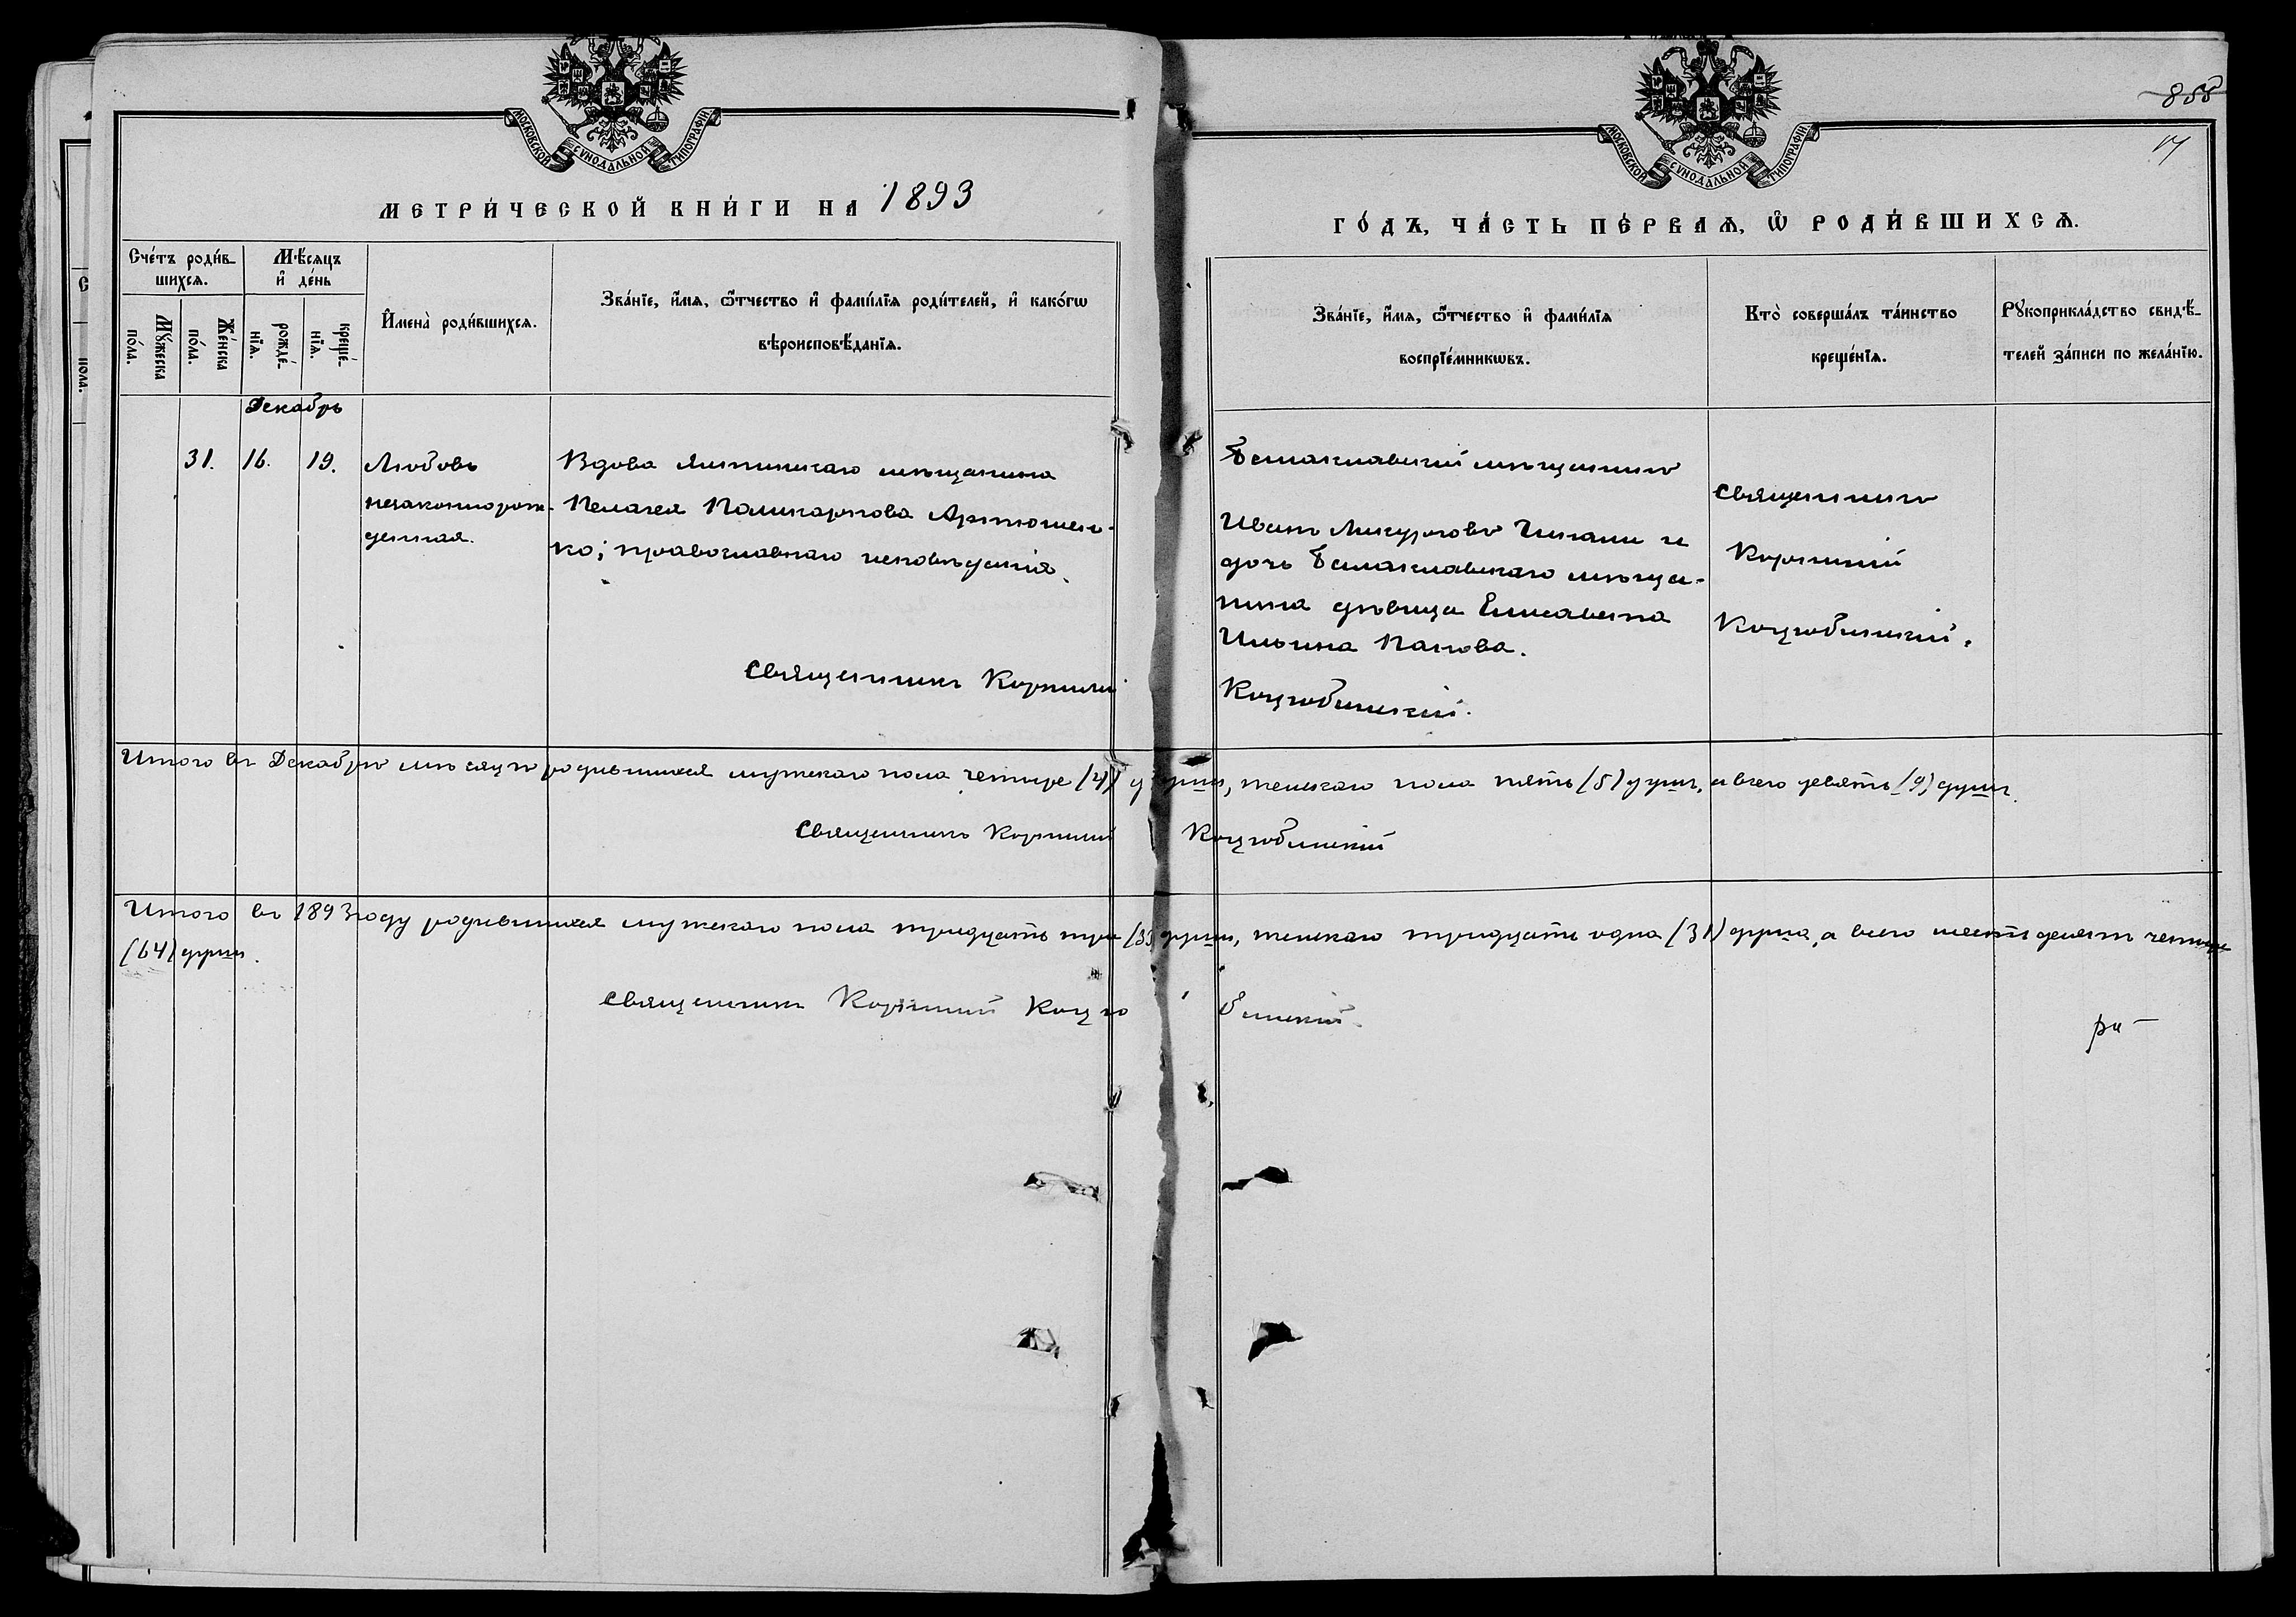 МОСКОВСКОЙ СѴНОДАЛЬНОЙ ТИПОГРАФІИ.
МЕТРИ́ЧЕСКОЙ КНИ́ГИ НА 1893
Сче́тъ роди́в-
шихся.
Мѣ́сяцъ
и҆ де́нь
Мꙋ́жеска
по́ла.
Же́нска
по́ла.
рожде́-
нїя.
креще́-
нїя.
И҆мена̀ роди́вшихся.
Зва́нїе, и҆́мя, ѻ҆́тчество и҆ фами́лїя роди́телей, и҆ како́гѡ
вѣроисповѣ́данїя.
Декабрь
31. 16. 19.
Любовь
незаконорож-
денная.
Вдова Ялтинскаго мѣщанина
Пелагея Поликарпова Артюшен-
ко; православнаго исповѣданія.
Священникъ Корнилій
МОСКОВСКОЙ СѴНОДАЛЬНОЙ ТИПОГРАФІИ.
855
17
ГО́ДЪ, ЧА́СТЬ ПЕ́РВАЯ, Ѡ҆ РОДИ́ВШИХСЯ.
Зва́нїе, и҆́мя, ѻ҆́тчество и҆ фами́лїя
воспрїе́мникѡвъ.
Кто̀ соверша́лъ та́инство
креще́нїя.
Рꙋкоприкла́дство свидѣ́-
телей за́писи по жела́нїю.
Балаклавскій мѣщанинъ
Иванъ Ликурговъ и
дочь Балаклавскаго мѣща-
нина дѣвица Елисавета
Ильина Папова.
Коцюбинскій.
Священникъ
Корнилій
Коцюбинскій.
Итого въ Декабрѣ мѣсяцѣ родившихся мужескаго пола четыре (4) души, женскаго пола пять (5) душъ, а всего девять (9) душъ.
Священникъ Корнилій Коцюбинскій
Итого въ 1893 году родившихся мужескаго пола тридцать три (33) души, женскаго тридцать одна (31) душа, а всего шестьдесятъ четыре
(64) души.
Священникъ Корнилій Коцюбинскій.